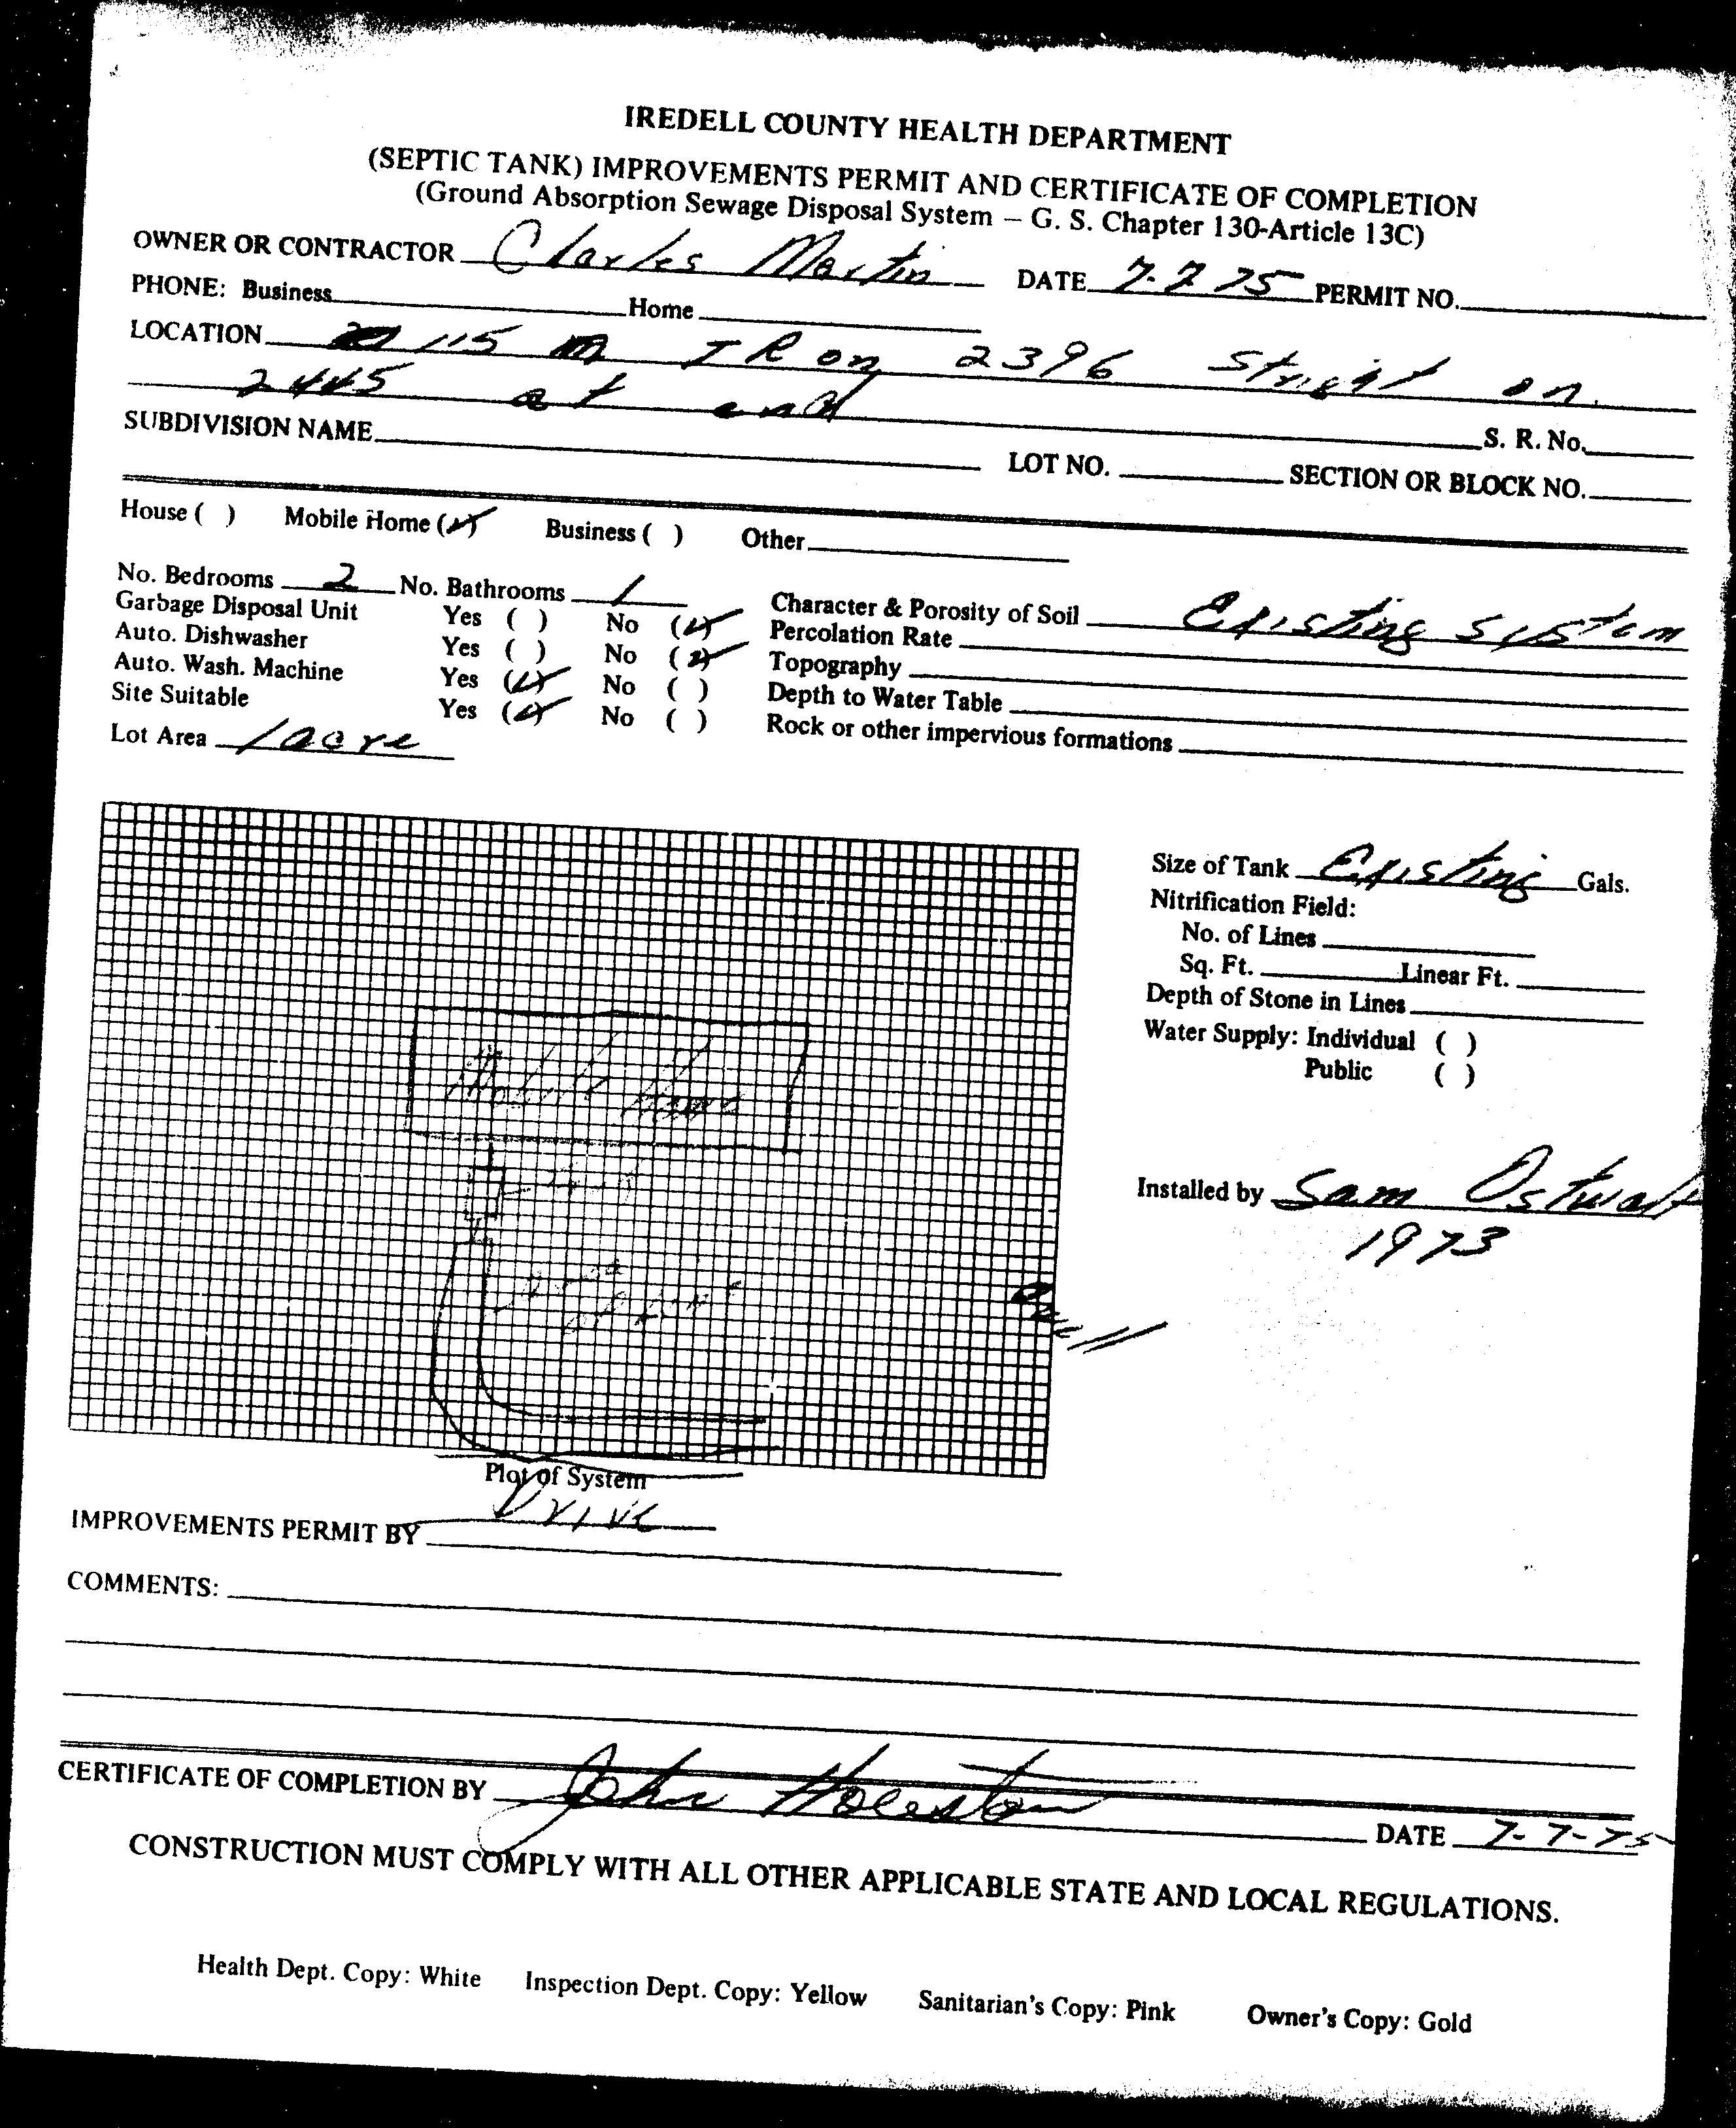 IREDELL COUNTY HEALTH DEPARTMENT
(SEPTIC TANK) IMPROVEMENTS PERMIT AND CERTIFICATE OF COMPLETION
(Ground Absorption Sewage Disposal System – G. S. Chapter 130-Article 13C)
OWNER OR CONTRACTOR Charles Martin DATE 7-7 75 PERMIT NO.
PHONE: Business Home
LOCATION 115 TR on 2396 Stright on
2445 at end S. R. No.
SUBDIVISION NAME LOT NO. SECTION OR BLOCK NO.
House ( ) Mobile Home (✓) Business ( ) Other
No. Bedrooms 2 No. Bathrooms 1 Character & Porosity of Soil Existing System
Garbage Disposal Unit Yes ( ) No (✓) Percolation Rate
Auto. Dishwasher Yes ( ) No (✓) Topography
Auto. Wash. Machine Yes (✓) No ( ) Depth to Water Table
Site Suitable Yes (✓) No ( ) Rock or other impervious formations
Lot Area 1 acre
Size of Tank Existing Gals.
Nitrification Field:
No. of Lines
Sq. Ft. Linear Ft.
Depth of Stone in Lines
Water Supply: Individual ( )
Public ( )
Mobile Home
Installed by Sam Ostwalt
1973
well
Plot of System
Drive
IMPROVEMENTS PERMIT BY
COMMENTS:
CERTIFICATE OF COMPLETION BY John DATE 7-7-75
CONSTRUCTION MUST COMPLY WITH ALL OTHER APPLICABLE STATE AND LOCAL REGULATIONS.
Health Dept. Copy: White Inspection Dept. Copy: Yellow Sanitarian's Copy: Pink Owner's Copy: Gold